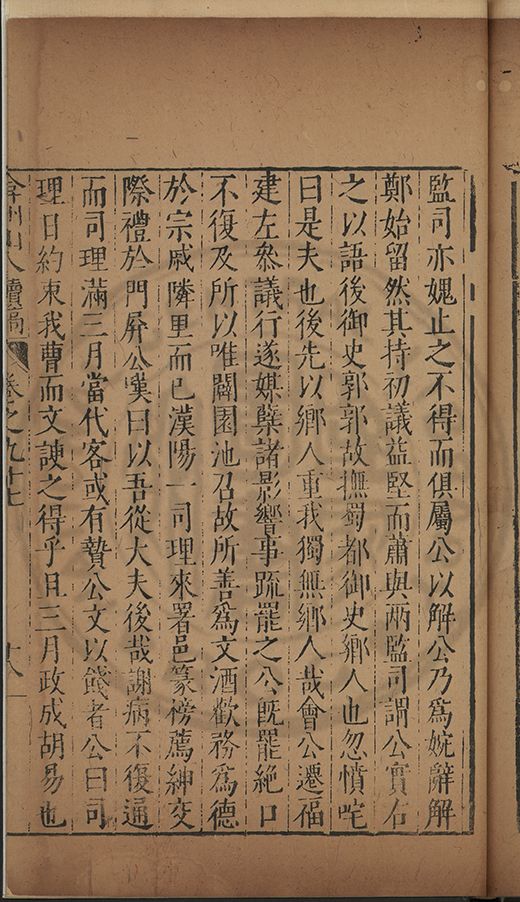 監司亦媿止之不得而俱屬公以解公乃爲婉辭解
鄭始留然其持初議益堅而蕭與兩監司謂公實右
之以語後御史郭郭故撫蜀都御史鄉人也忽憤咤
曰是夫也後先以鄉人重我獨無鄉人哉會公遷福
建左叅議行遂媒櫱諸影響事䟽罷之公旣罷絶口
不復及所以唯闢園池召故所善爲文酒歡務爲德
於宗戚隣里而已漢陽一司理來署邑篆榜薦紳交
際禮於門屏公嘆曰以吾從大夫後哉謝病不復通
而司理滿三月當代客或有贄公文以餞者公曰司
理日約束我曹而文諛之得乎且三月政成胡易也
弇州山人續稿 卷之九十七 十八